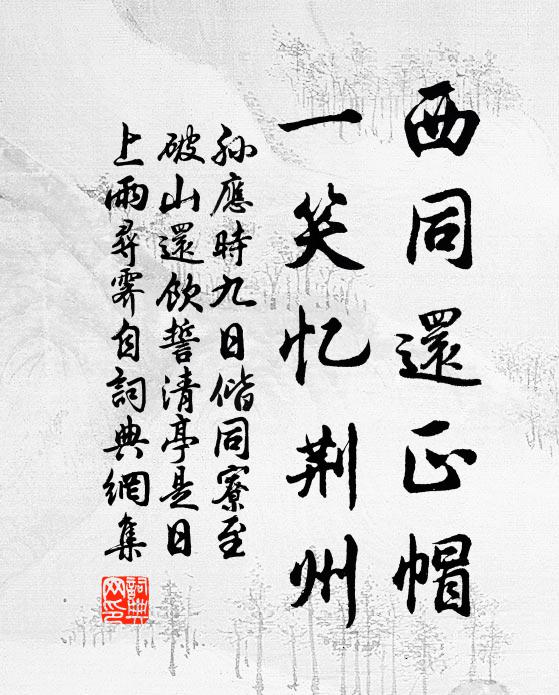 西同還正帽
一笑忆荆州
孙應時九日偕同寮至
破山還飲誓清亭是日
上雨尋霽自詞典網集